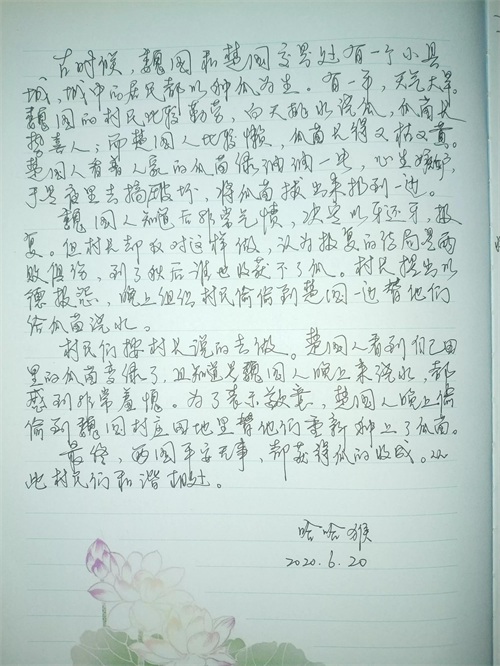 古时候,魏国和楚国交界处有一个小县
城,城中的居民都以种瓜为生。有一年,天气大旱。
魏国的村民比较勤劳,白天挑水浇瓜,瓜苗长
势喜人;而楚国人比较懒,瓜苗长得又枯又黄。
楚国人看着人家的瓜苗绿油油一片,心生嫉妒,
于是夜里去搞破坏,将瓜苗拔出来扔到一边。
魏国人知道后非常气愤,决定以牙还牙,报
复。但村长却反对这样做,认为报复的结局是两
败俱伤,到了秋后谁也收获不了瓜。村长提出以
德报怨,晚上组织村民偷偷到楚国一边替他们
给瓜苗浇水。
村民们按村长说的去做。楚国人看到自己田
里的瓜苗变绿了,且知道是魏国人晚上来浇水,都
感到非常羞愧。为了表示歉意,楚国人晚上偷
偷到魏国村庄田地里替他们重新种上了瓜苗。
最终,两国平安无事,都获得瓜的收成。从
此村民们和谐相处。
哈哈猴
2020.6.20